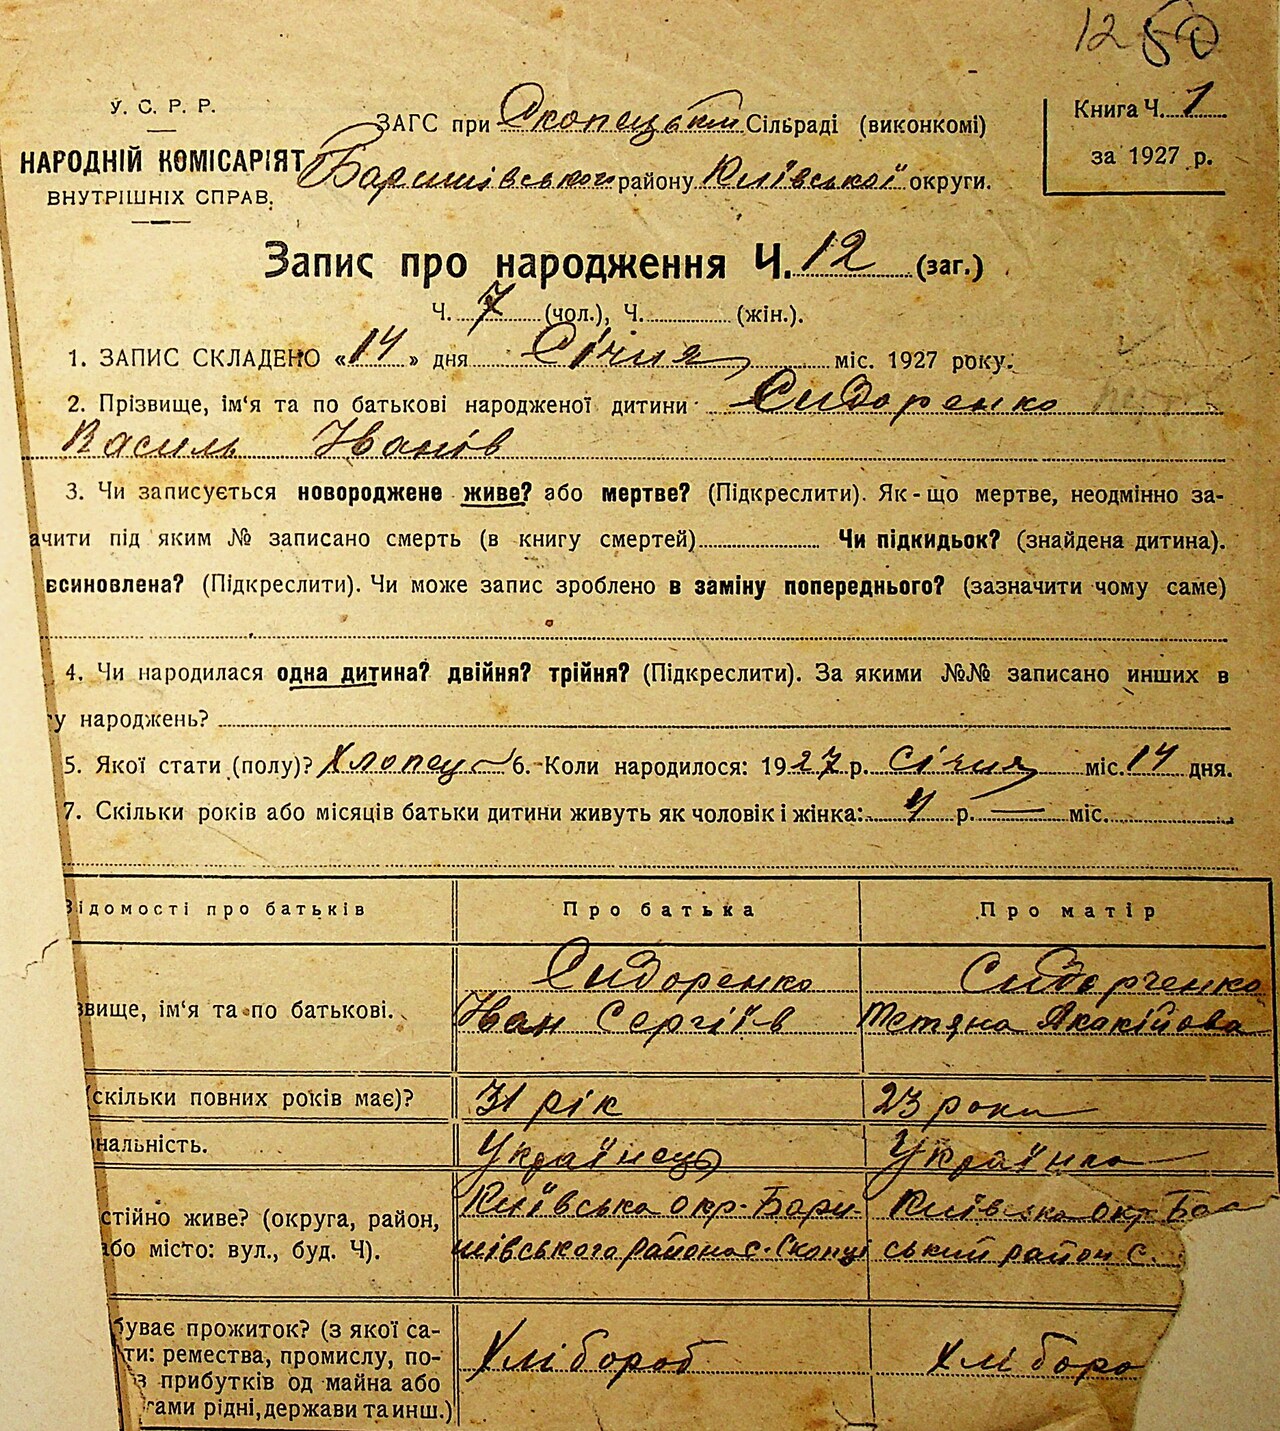 1250
У. С. Р. Р.
НАРОДНІЙ КОМІСАРІЯТ
ВНУТРІШНІХ СПРАВ.
ЗАГС при Скопецькій Сільраді (виконкомі)
Баришівського району Київської округи.
Книга Ч. 1
за 1927 р.
Запис про народження Ч. 12 (заг.)
Ч. 7 (чол.), Ч. (жін.).
1. ЗАПИС СКЛАДЕНО «14» дня Січня міс. 1927 року.
2. Прізвище, ім‘я та по батькові народженої дитини Сидоренко
Василь Іванів
3. Чи записується новороджене живе? або мертве? (Підкреслити). Як-що мертве, неодмінно за-
ачити під яким № записано смерть (в книгу смертей) Чи підкидьок? (знайдена дитина).
всиновлена? (Підкреслити). Чи може запис зроблено в заміну попереднього? (зазначити чому саме)
4. Чи народилася одна дитина? двійня? трійня? (Підкреслити). За якими №№ записано инших в
у народжень?
5. Якої стати (полу)? Хлопець 6. Коли народилося: 1927 р. січня міс. 14 дня.
7. Скільки років або місяців батьки дитини живуть як чоловік і жінка: 4 р. — міс.
Відомості про батьків Про батька Про матір
Сидоренко Сидорченко
звище, ім‘я та по батькові. Іван Сергіїв Тетяна Акакійова
(скільки повних років має)? 31 рік 23 роки
ональність. Українець Українка
стійно живе? (округа, район, Київська окр. Бари- Київська окр. Бар
або місто: вул., буд. Ч). шівського района с. Скопці ський район с.
буває прожиток? (з якої са-
ти: ремества, промислу, по- Хлібороб хліборо
з прибутків од майна або
гами рідні, держави та инш.)